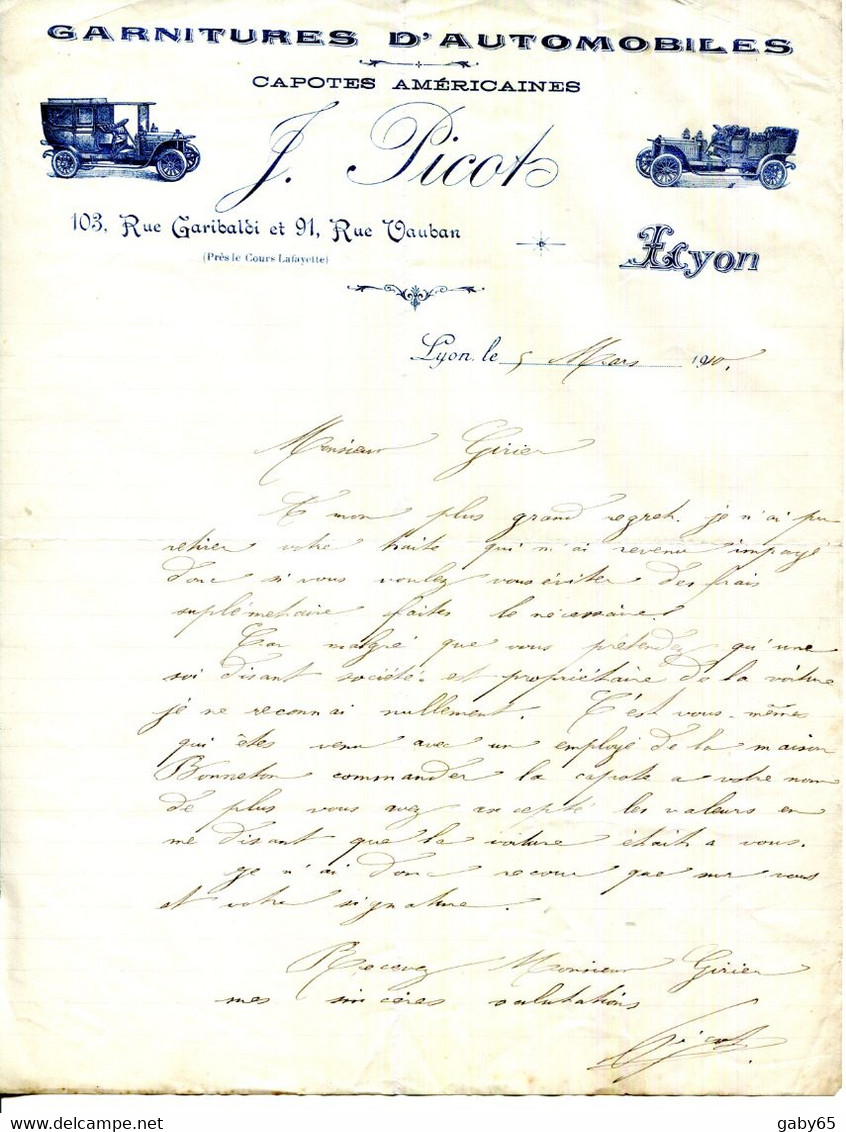 GARNITURES D'AUTOMOBILES
CAPOTES AMÉRICAINES
J. Picot
103, Rue Garibaldi et 91, Rue Vauban
(Près le Cours Lafayette)
Lyon
Lyon, le 5 Mars 1910.
Monsieur Girier
A mon plus grand regret. je n'ai pu
retirer votre traite qui m'ai revenu impayé
donc si vous voulez vous éviter des frais
suplémetaire faites le nécessaire.
Car malgré que vous prétendez qu'une
soi disant société. est propriétaire de la voiture
je ne reconnai nullement. C'est vous-mêmes
qui êtes venu avec un employé de la maison
Bonneton commander la capote a votre nom
de plus vous avez accepté les valeurs en
me disant que la voiture était a vous.
je n'ai donc recour que sur vous
et votre signature.
Recevez Monsieur Girier
mes sincères salutations
Picot
gaby65